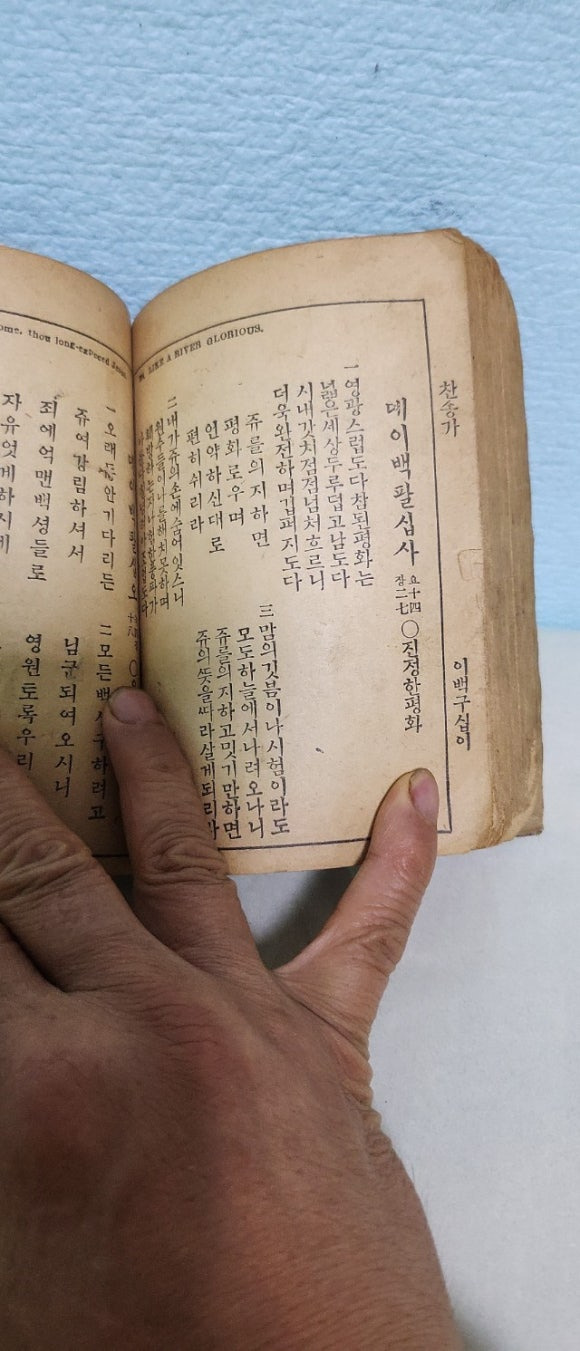 찬송가
이백구십이
LIKE A RIVER GLORIOUS.
뎨이백팔십사
요十四
장二七
〇진정한평화
一영광스럽도다참된평화는
넓은세상두루덥고남도다
시내갓치점점넘처흐르니
더욱완전하며깁퍼지도다
쥬를의지하면
평화로우며
언약하신대로
편히쉬리라
二내가쥬의손에숨어잇스니
원수들이나를해치못하며
三맘의깃븜이나시험이라도
모도하늘에서나려오나니
쥬를의지하고밋기만하면
쥬의뜻을따라살게되리라
ome, thou long-expected
一오래
안기다리든
쥬여강림하셔서
죄에억맨백성들로
자유엇게하시네
二모든백
구하려고
님군되여오시니
영원토록우리